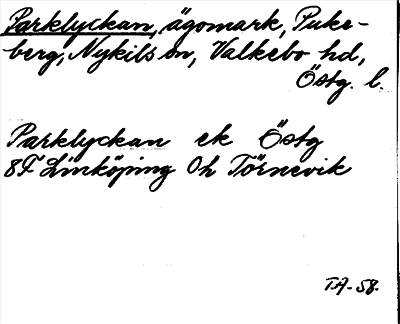 Parklyckan, ägomark, Puke-
berg, Nykils sn, Valkebo hd,
Östg. l.
Parklyckan ek Östg
8F Linköping Oh Törnevik
TA-58.